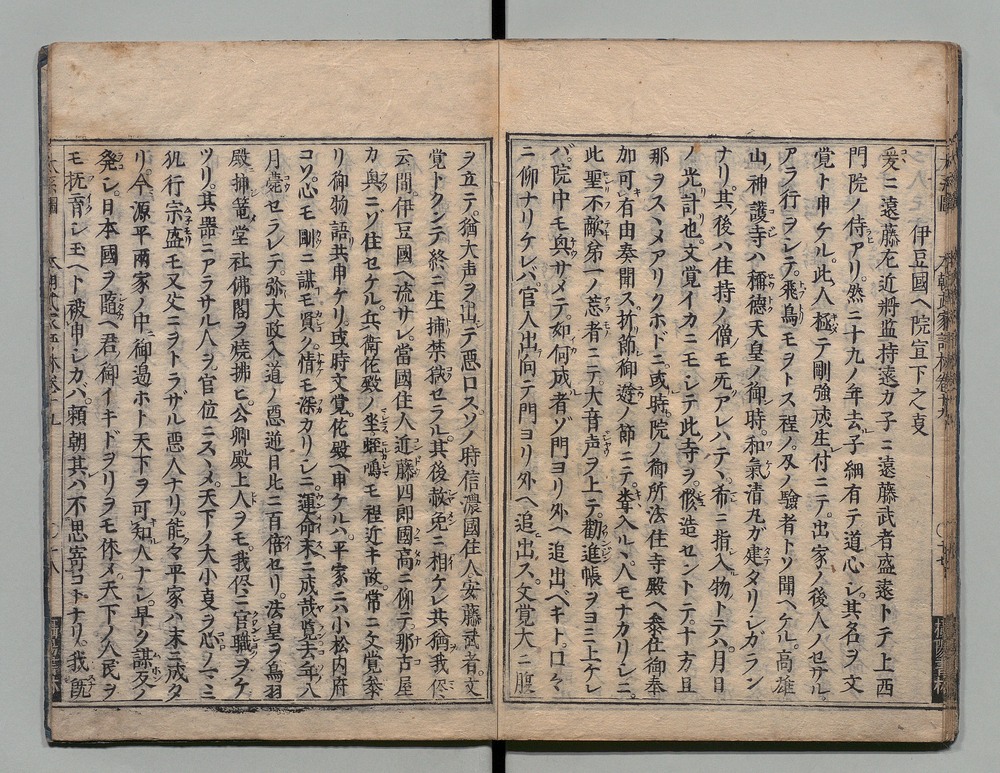 伊豆國ヘ院宣下之夏
爰ニ遠藤左近將監持遠カ子ニ遠藤武者盛遠トテ上西
門院ノ侍アリ然ニ十九ノ年去子細有テ道心シ其名ヲ文
覚ト申ケル此人極テ剛強成生付ニテ出家ノ後人ノセサル
アラ行ヲシテ飛鳥モヲトス程ノ及ノ驗者トソ聞ヘケル高雄
山神護寺ハ稱德天皇ノ御時和氣清丸ガ建タリシガラン
ナリ其後ハ住持ノ僧モ死アレハテ希ニ指入物トテハ月日
ノ光計也文覚イカニモシテ此寺ヲ修造セントテ十方且
那ヲスヽメアリクホドニ或時院ノ御所法住寺殿ヘ参住御奉
加可有由奏聞ス折節御遊ノ節ニテ奏入ルヽ人モナカリシニ
此聖不敵第一ノ惡者ニテ大音声ヲ上テ勸進帳ヲヨミ上ケレ
バ院中モ興サメテ如何成者ソ門ヨリ外ヘ追出ヘキト口々
ニ仰ナリケレバ官人出向テ門ヨリ外ヘ追出ス文覚大ニ腹
ヲ立テ猶大声ヲ出テ悪口スソノ時信濃國住人安藤武者文
覚トクンテ終ニ生捕禁獄セラル其後赦免ニ相ケレ共猶我侭
云間伊豆國ヘ流サレ當國住人近藤四郎國高ニ仰テ那古屋
カ奥ニゾ住セケル兵衛佐殿ノ坐蛭嶋モ程近キ故常ニ文覚参
リ御物語共申ケリ或時文覚佐殿ヘ申ケルハ平家ニハ小松内府
コソ心モ剛ニ謀モ賢ク情モ深カリシニ運命末ニ成哉覽去年八
月薨セラレテ弥大政入道ノ悪道日比ニ百倍セリ法皇ヲ鳥羽
殿ニ捕篭堂社佛閣ヲ焼拂ヒ公卿殿上人ヲモ我侭ニ官職ヲケ
ツリ其器ニアラサル人ヲ官位ニスヽメ天下ノ大小夏ラ心ノマヽニ
執行宗盛モ又父ニヲトラザル悪人ナリ能々平家ハ末ニ成タ
リ今源平兩家ノ中ニ御邊ホト天下ヲ可知人ナシ早ク謀叛ノ
発シ日本國ヲ隨ヘ君ノ御イキドヲリヲモ休メ天下ノ人民ヲ
モ撫育シ玉ヘト被申シカバ頼朝其ハ不思寄コトナリ我既